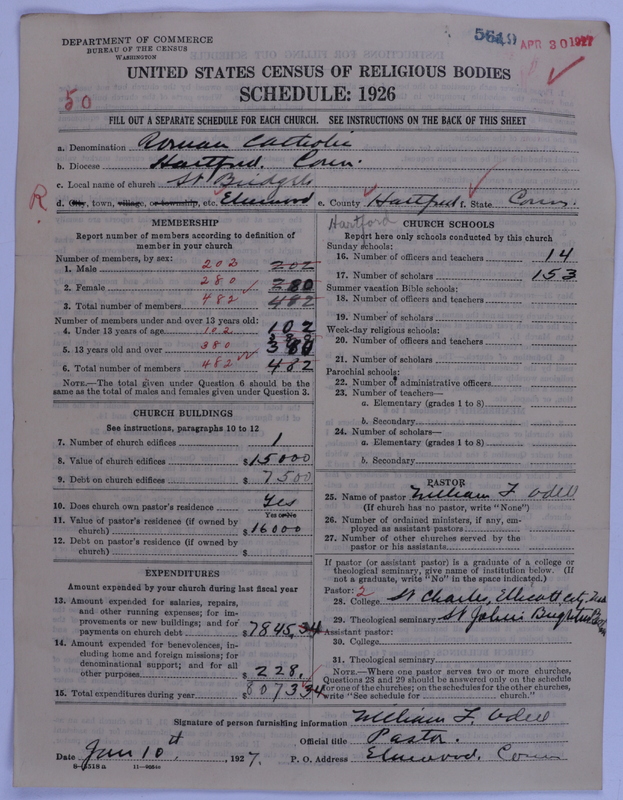 DEPARTMENT OF COMMERCE
BUREAU OF THE CENSUS
WASHINGTON
APR 30 1927
UNITED STATES CENSUS OF RELIGIOUS BODIES
SCHEDULE: 1926
50
FILL OUT A SEPARATE SCHEDULE FOR EACH CHURCH. SEE INSTRUCTIONS ON THE BACK OF THIS SHEET
a. Denomination Roman Catholic
b. Diocese Hartford. Conn.
c. Local name of church St Bridgets
R d. City, town, village, or township, etc. Elmwood e. County Hartford f. State Conn.
Hartford
MEMBERSHIP
Report number of members according to definition of member in your church
Number of members, by sex:
1. Male 202 202
2. Female 280 280
3. Total number of members 482 482
Number of members under and over 13 years old:
4. Under 13 years of age 102 102
5. 13 years old and over 380 380
6. Total number of members 482 482
NOTE.—The total given under Question 6 should be the
same as the total of males and females given under Question 3.
CHURCH BUILDINGS
See instructions, paragraphs 10 to 12
7. Number of church edifices 1
8. Value of church edifices $15000
9. Debt on church edifices $7500
10. Does church own pastor's residence Yes
Yes or No
11. Value of pastor's residence (if owned by
church) $16000
12. Debt on pastor's residence (if owned by
church) $
EXPENDITURES
Amount expended by your church during last fiscal year
13. Amount expended for salaries, repairs,
and other running expenses; for im-
provements or new buildings; and for
payments on church debt $7845.34
14. Amount expended for benevolences, in-
cluding home and foreign missions; for
denominational support; and for all
other purposes $228.
15. Total expenditures during year $8073 34
CHURCH SCHOOLS
Report here only schools conducted by this church
Sunday schools:
16. Number of officers and teachers 14
17. Number of scholars 153
Summer vacation Bible schools:
18. Number of officers and teachers
19. Number of scholars
Week-day religious schools:
20. Number of officers and teachers
21. Number of scholars
Parochial schools:
22. Number of administrative officers
23. Number of teachers—
a. Elementary (grades 1 to 8)
b. Secondary
24. Number of scholars—
a. Elementary (grades 1 to 8)
b. Secondary
PASTOR
25. Name of pastor William F Odell
(If church has no pastor, write "None")
26. Number of ordained ministers, if any, em-
ployed as assistant pastors
27. Number of other churches served by the
pastor or his assistants
If pastor (or assistant pastor) is a graduate of a college or
theological seminary, give name of institution below. (If
not a graduate, write "No" in the space indicated.)
Pastor: 2
28. College St Charles, Ellicott City, Md
29. Theological seminary St John's Brighton
Assistant pastor:
30. College
31. Theological seminary
NOTE.—Where one pastor serves two or more churches,
Questions 28 and 29 should be answered only on the schedule
for one of the churches; on the schedules for the other churches,
write "See schedule for church."
Signature of person furnishing information William F. Odell
Official title Pastor.
Date Jan 10th, 1927. P. O. Address Elmwood, Conn
11—9554